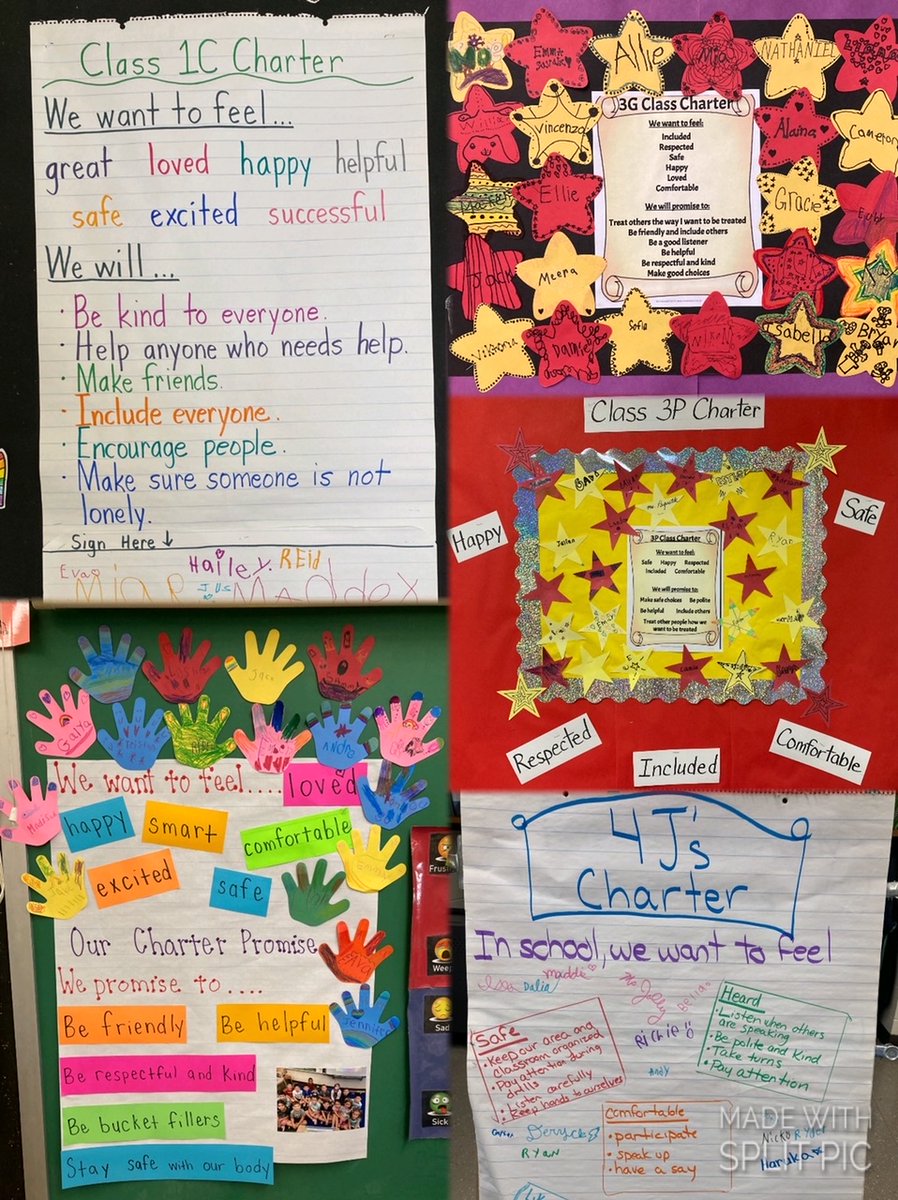 Class 1C Charter
We want to feel...
great loved happy helpful
safe excited successful
We will...
· Be kind to everyone.
· Help anyone who needs help.
· Make friends.
· Include everyone.
· Encourage people.
· Make sure someone is not
lonely.
Sign Here ↓
Hailey REid
Eva
Mia Maddox
Emma
Allie
Mia
NATHANIEL
Vincenzo
Alaina
Cameron
Ellie
Gracie
Jack
Meera
Sofia
Isabella
Daniel
3G Class Charter
We want to feel:
Included
Respected
Safe
Happy
Loved
Comfortable
We will promise to:
Treat others the way I want to be treated
Be friendly and include others
Be a good listener
Be helpful
Be respectful and kind
Make good choices
Class 3P Charter
Happy
Safe
Ryan
Julian
3P Class Charter
We want to feel:
Safe Happy Respected
Included Comfortable
We will promise to:
Make safe choices Be polite
Be helpful Include others
Treat other people how we
want to be treated
Respected
Included
Comfortable
Jack
Gaia
Andre
We want to feel....
loved
happy
smart
comfortable
excited
safe
Our Charter Promise
We promise to....
Jennifer
Be friendly
Be helpful
Be respectful and kind
Be bucket fillers
Stay safe with our body
Sad
Sick
4J's
Charter
In school, we want to feel
Isa Dalia Maddie
Richie
Andy
Safe
· Keep our area and
classroom organized
· Pay attention during
drills
· Listen carefully
· Keep hands to ourselves
Heard
· Listen when others
are speaking
· Be polite and kind
· Take turns
· Pay attention
Comfortable
· participate
· speak up
· have a say
Deryck
RYAN
Nicko RYDER
Haruka
MADE WITH
SPLIT PIC